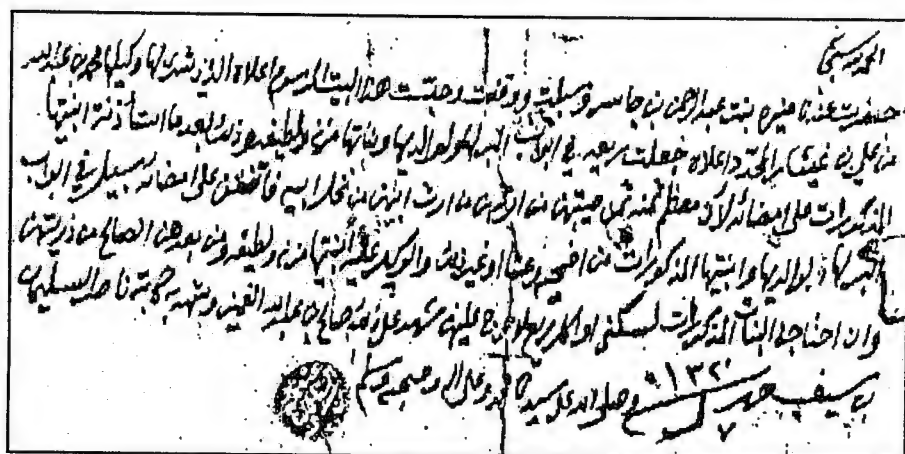 الحمد لله سبحانه
حضرت عندنا منيره بنت عبد الرحمن بن جاسر وسبلت ووقفت وحبست هذا البيت المرسوم اعلاه الذي شرى لها وكيلها محمد بن عبد الله
من علي بن غيثار المحدد اعلاه جعلت ريعه في ابواب البر لها ولوالديها وبناتها مزنه ولطيفه وذلك بعد ما استأذنت ابنتيها
المذكورات على امضائه لان معظم ثمنه من ارث ابيهن فاتفقن على امضائه سبيل في ابواب
البر لها ولوالديها وابنتيها المذكورات من اضحيه وعشا وغير ذلك والوكيل عليه ابنتيها مزنه ولطيفه ومن بعدهن الصالح من ذريتهن
وان احتاجن البنات المذكورات لسكنى او اكل ريع فلا حرج عليهن شهد على ذلك صالح بن عبد الله وشهد به كاتبه ناصر السليمان
بن سيف ١٣٢٠ وصلى الله على سيدنا محمد وعلى اله وصحبه وسلم
٧